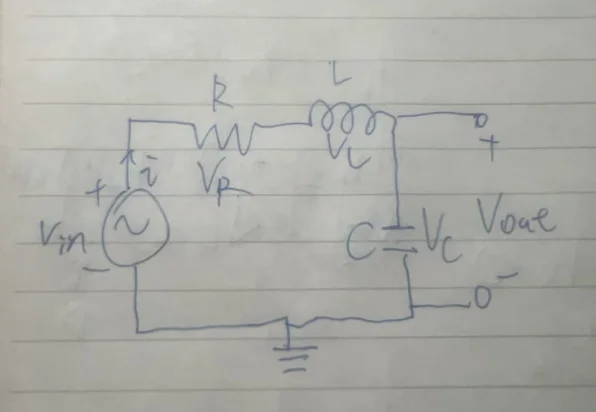 L
R
+ i V_R V_L +
Vin ~ C V_C Vout
- -